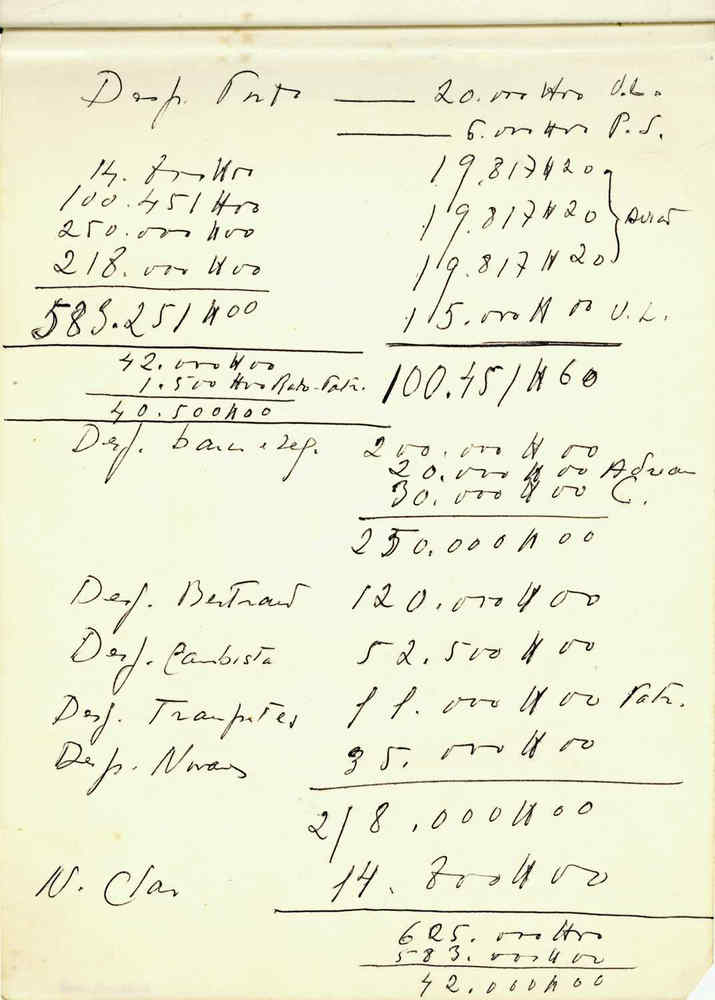 Desp. Porto —— 20.000$00 V.L.
—— 6.000$00 P.S.
14.800$00 19.817$20
100.451$00 19.817$20
250.000$00 19.817$20
218.000$00 15.000$00 V.L.
583.251$00
42.000$00
1.500$00 Patr. 100.451$60
40.500$00
Desp. 200.000$00
20.000$00
30.000$00 C.
250.000$00
Desp. Bertrand 120.000$00
Desp. Cambista 52.500$00
Desp. 11.000$00 Patr.
Desp. Novaes 35.000$00
218.000$00
N. 14.800$00
625.000$00
583.000$00
42.000$00